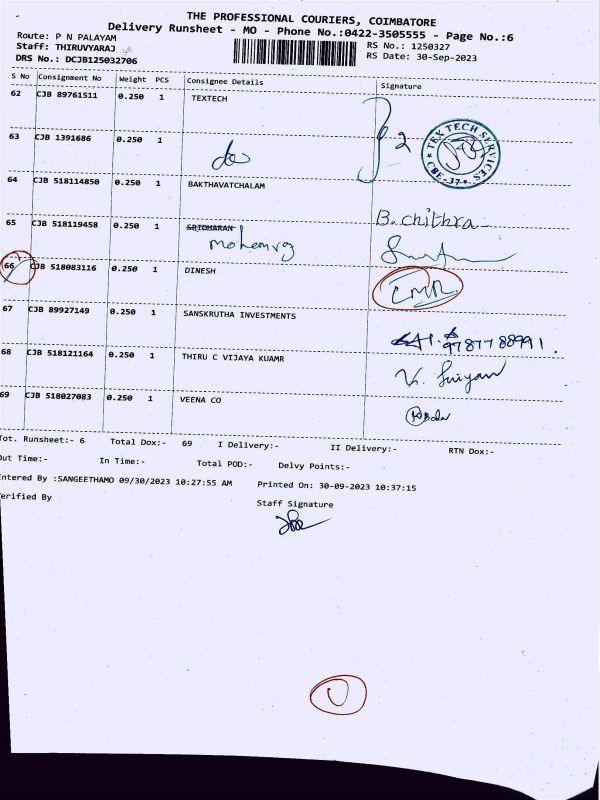 THE PROFESSIONAL COURIERS, COIMBATORE
Delivery Runsheet - MO - Phone No.:0422-3505555 - Page No.:6
Route: P N PALAYAM
Staff: THIRUVYARAJ
DRS No.: DCJB125032706
RS No.: 1250327
RS Date: 30-Sep-2023
S No Consignment No Weight PCS Consignee Details Signature
62 CJB 89761511 0.250 1 TEXTECH
2
TEX TECH SERVICES
* CBE-37 *
63 CJB 1391686 0.250 1
do
64 CJB 518114850 0.250 1 BAKTHAVATCHALAM
B. chithra
65 CJB 518119458 0.250 1 SRIDHARAN
66 CJB 518083116 0.250 1 DINESH
67 CJB 89927149 0.250 1 SANSKRUTHA INVESTMENTS
9787788991.
68 CJB 518121164 0.250 1 THIRU C VIJAYA KUAMR
69 CJB 518027083 0.250 1 VEENA CO
Tot. Runsheet:- 6 Total Dox:- 69 I Delivery:- II Delivery:- RTN Dox:-
Out Time:- In Time:- Total POD:- Delvy Points:-
Entered By :SANGEETHAMO 09/30/2023 10:27:55 AM Printed On: 30-09-2023 10:37:15
Verified By
Staff Signature